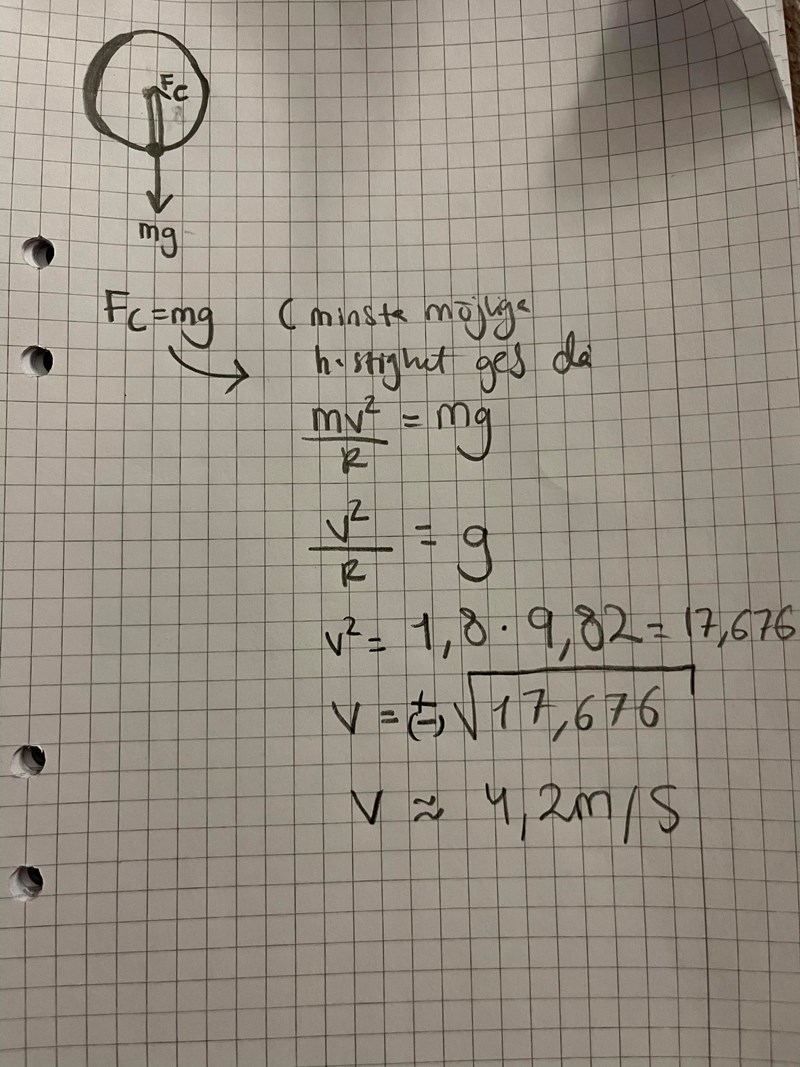 Fc
mg
Fc=mg (minsta möjliga
hastighet ges då
mv²/R = mg
v²/R = g
v² = 1,8 · 9,82 = 17,676
V = (±) √17,676
V ≈ 4,2m/s